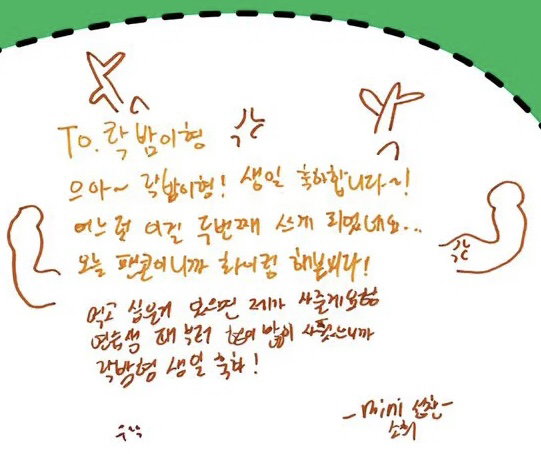 To. 락밤이형
으아~ 락밥이형! 생일 축하합니다~!
어느덧 이걸 두번째 쓰게 되었네요...
오늘 팬콘이니까 화이팅 해봅시다!
먹고 싶은거 있으면 제가 사줄게요형
연습생 때부터 형이 많이 사줬으니까
락밤형 생일 축하!
-mini 성찬-
소희